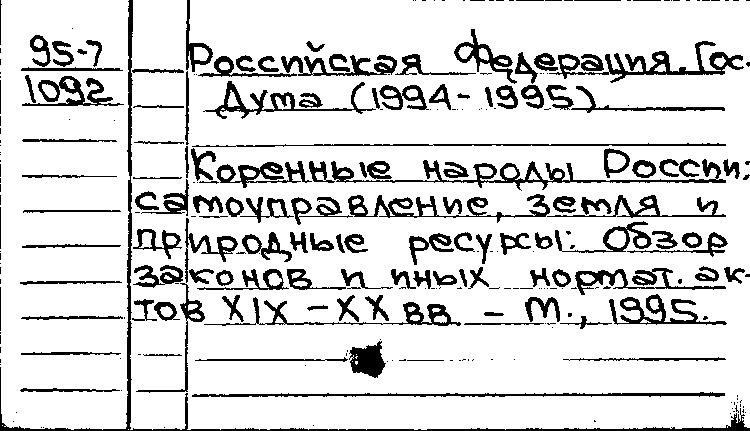 95-7
1092
Российская Федерация. Гос.
Дума (1994-1995).
Коренные народы России:
самоуправление, земля и
природные ресурсы: Обзор
законов и иных нормат. ак-
тов XIX - XX вв. - М., 1995.